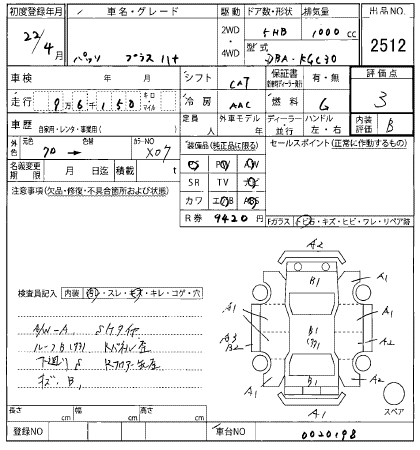 初度登録年月 車名・グレード 駆動 ドア数・形状 排気量 出品NO.
22/4月 パッソ プラスハナ 2WD・4WD 5HB 1000cc 2512
型式 DBA-KGC30
車検 年 月 シフト CAT 保証書 有・無 評価点
走行 9万6千150 キロ・マイル 冷房 AAC 燃料 G 3
車歴 自家用・レンタ・事業用( ) 定員 人 外車モデル 年 ディーラー・並行 ハンドル 左・右 内装評価 B
外色 元色 色替 カラーNO X07
装備品(純正品に限る) セールスポイント(正常に作動するもの)
名義変更期限 月 日迄 積載 t
SR TV
カワ
注意事項(欠品・修復・不具合箇所および状態)
R券 9420円
Fガラス トビ石・キズ・ヒビ・ワレ・リペア跡
検査員記入 内装 ・スレ・ ・キレ・コゲ・穴
A/W-A
キズ B1
A2
A1
B1
A1
A1
A1
A3
B2
B1
A2
B1
A1
A1
A2
A1
スペア
長さ cm 幅 cm 高さ cm
登録NO 車台NO 0020198